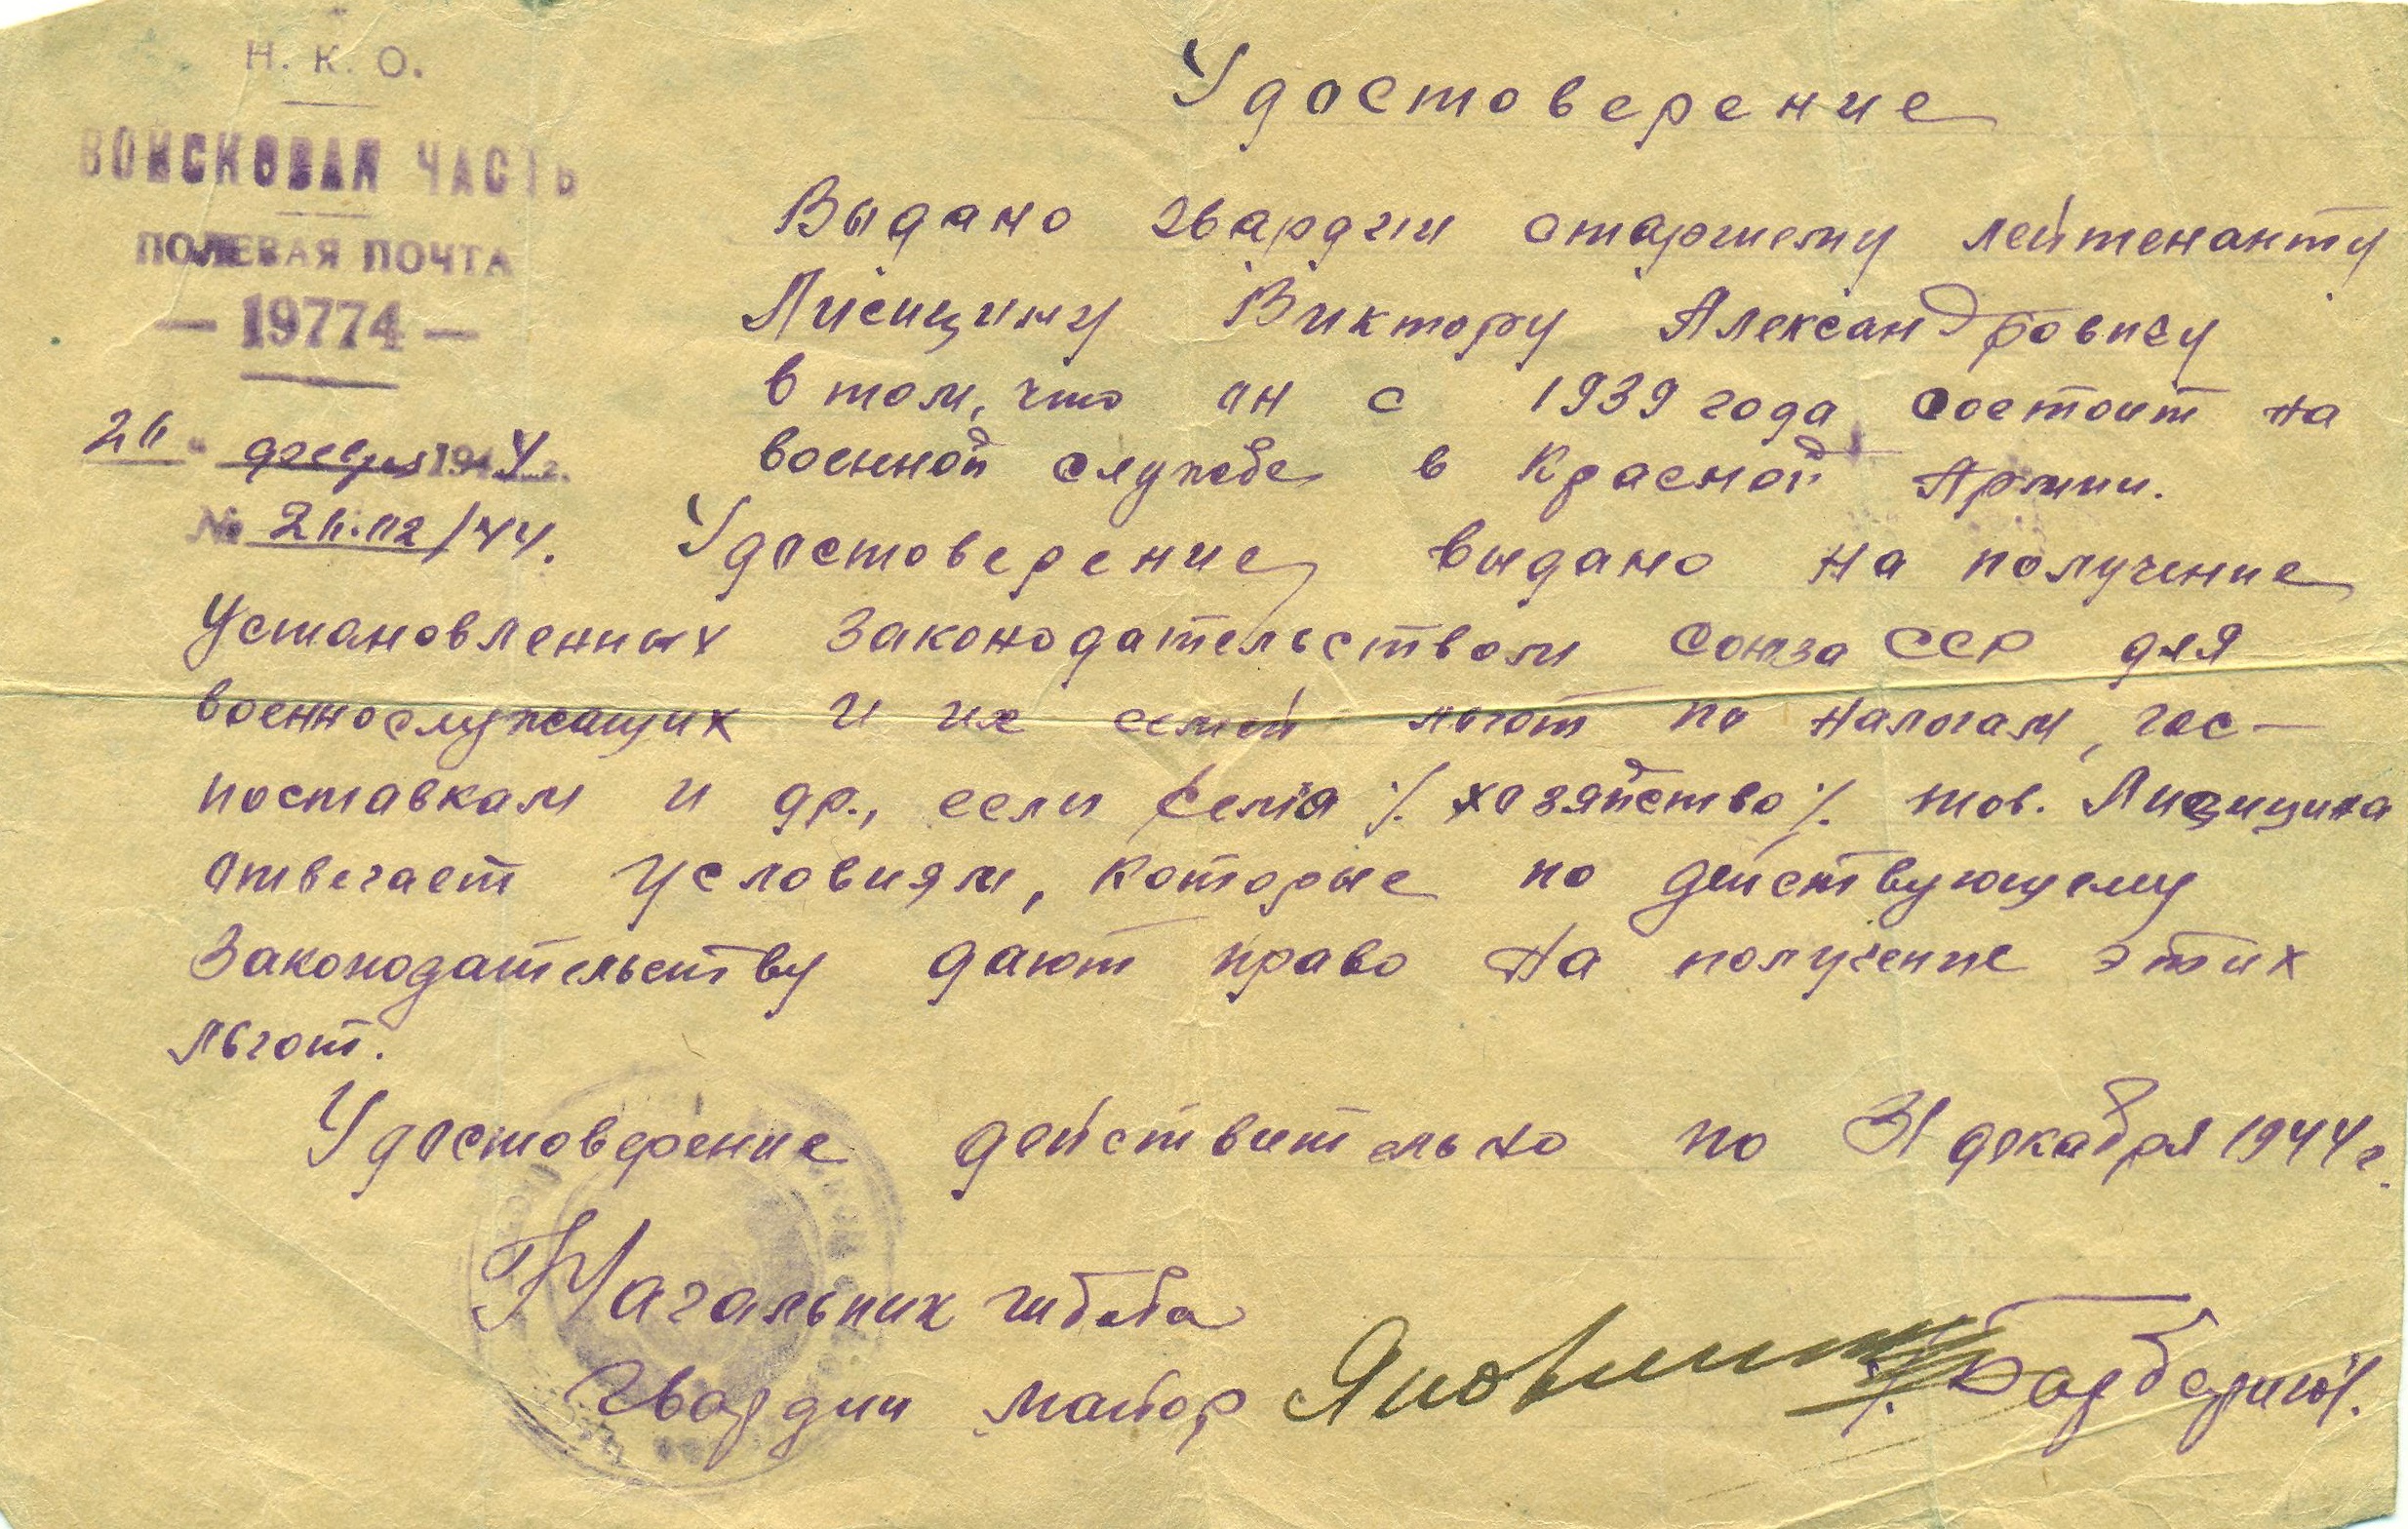 Н. К. О.
ВОИСКОВАЯ ЧАСТЬ
ПОЛЕВАЯ ПОЧТА
— 19774 —
февраля 1944 г.
№
Удостоверение
Выдано гвардии старшему лейтенанту
Лисицину Виктору Александровичу
в том, что он с 1939 года состоит на
военной службе в Красной Армии.
Удостоверение выдано на получение
установленных законодательством Союза ССР для
военнослужащих и их семей льгот по налогам, гос-
поставкам и др., если семья ./. хозяйство ./. тов. Лисицина
отвечает условиям, которые по действующему
законодательству дают право на получение этих
льгот.
Удостоверение действительно по 31 декабря 1944 г.
Начальник штаба
гвардии майор